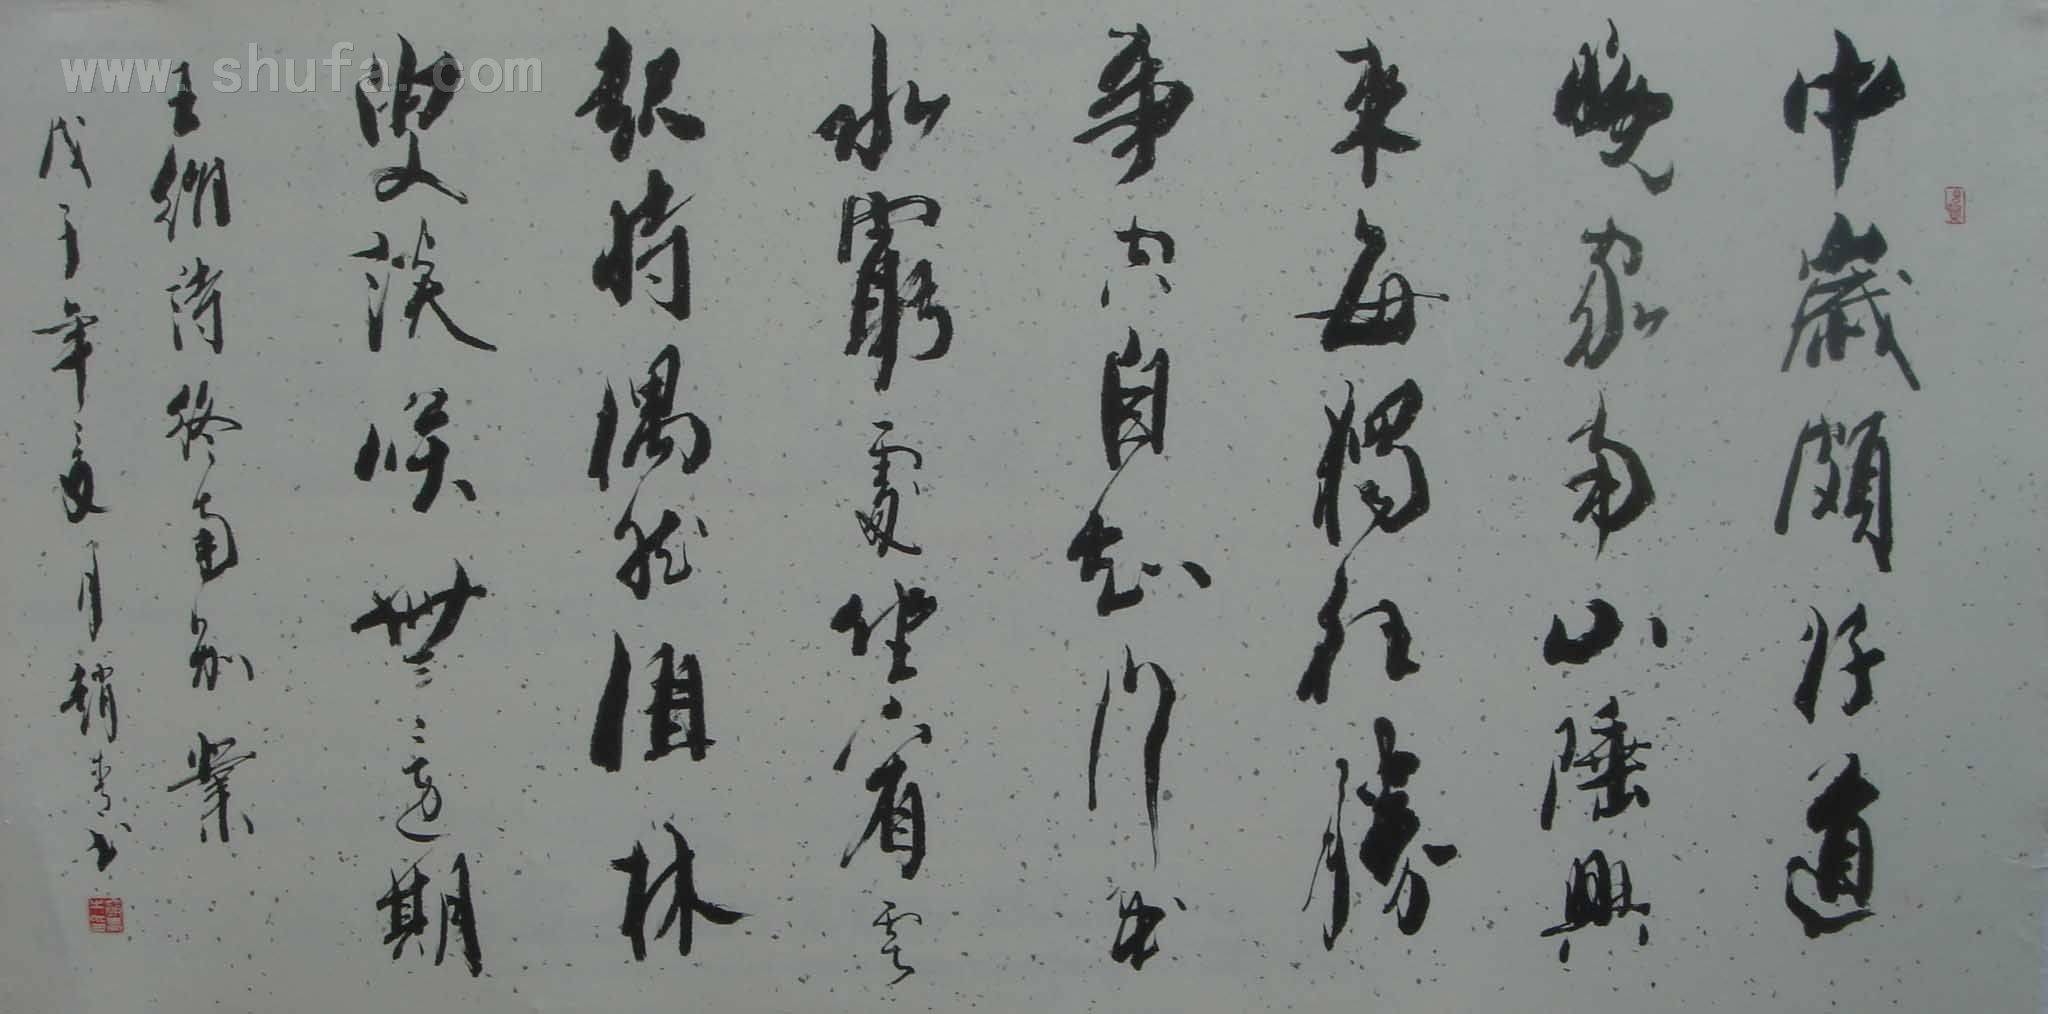 中歲頗好道
晚家南山陲興
來每獨往勝
事空自知行到
水窮處坐看雲
起時偶然值林
叟談笑無還期
王維詩終南別業
戊子年夏月趙青书
www.shufa.com